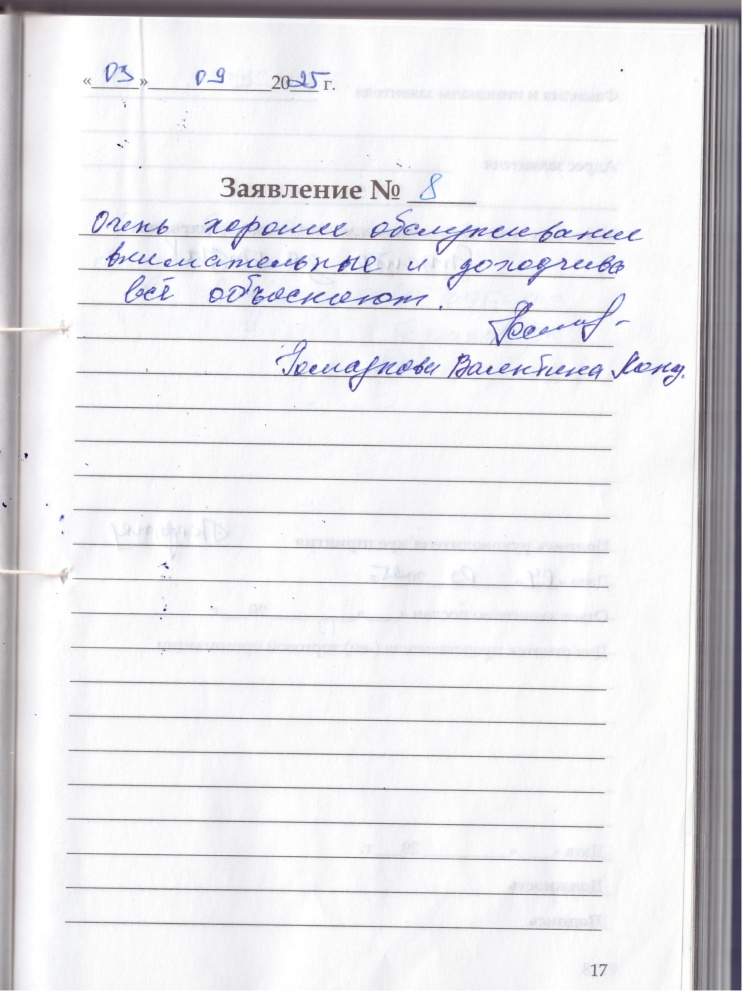 «03» 09 2025 г.
Заявление № 8
Очень хорошее обслуживание
внимательные и доходчиво
всё объясняют.
Валентина
17